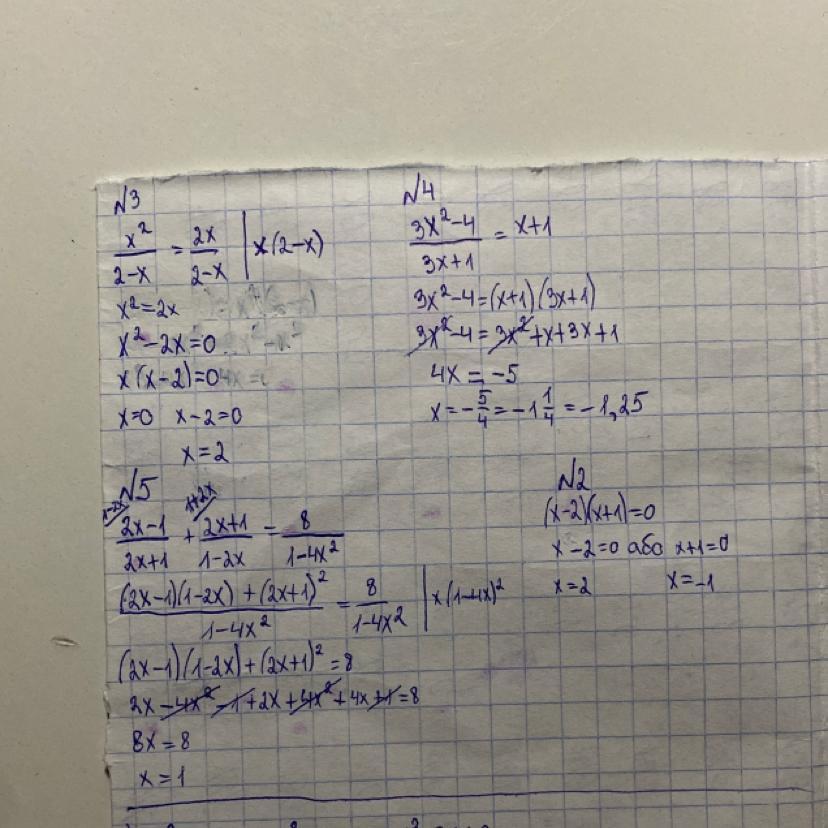 №3
x²/(2-x) = 2x/(2-x) | x(2-x)
x²=2x
x²-2x=0
x(x-2)=0
x=0 x-2=0
x=2
№4
(3x²-4)/(3x+1) = x+1
3x²-4=(x+1)(3x+1)
3x²-4=3x²+x+3x+1
4x=-5
x=-5/4=-1 1/4=-1,25
№5
1-2x 1+2x
(2x-1)/(2x+1) + (2x+1)/(1-2x) = 8/(1-4x²)
((2x-1)(1-2x)+(2x+1)²)/(1-4x²) = 8/(1-4x²) | x(1-4x)²
(2x-1)(1-2x)+(2x+1)²=8
2x-4x²-1+2x+4x²+4x+1=8
8x=8
x=1
№2
(x-2)(x+1)=0
x-2=0 або x+1=0
x=2 x=-1